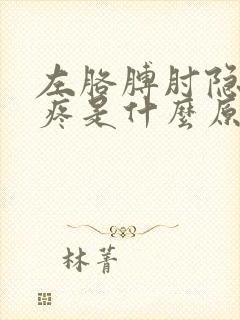 左胳膊肘隐
疼是什麼原
林菁